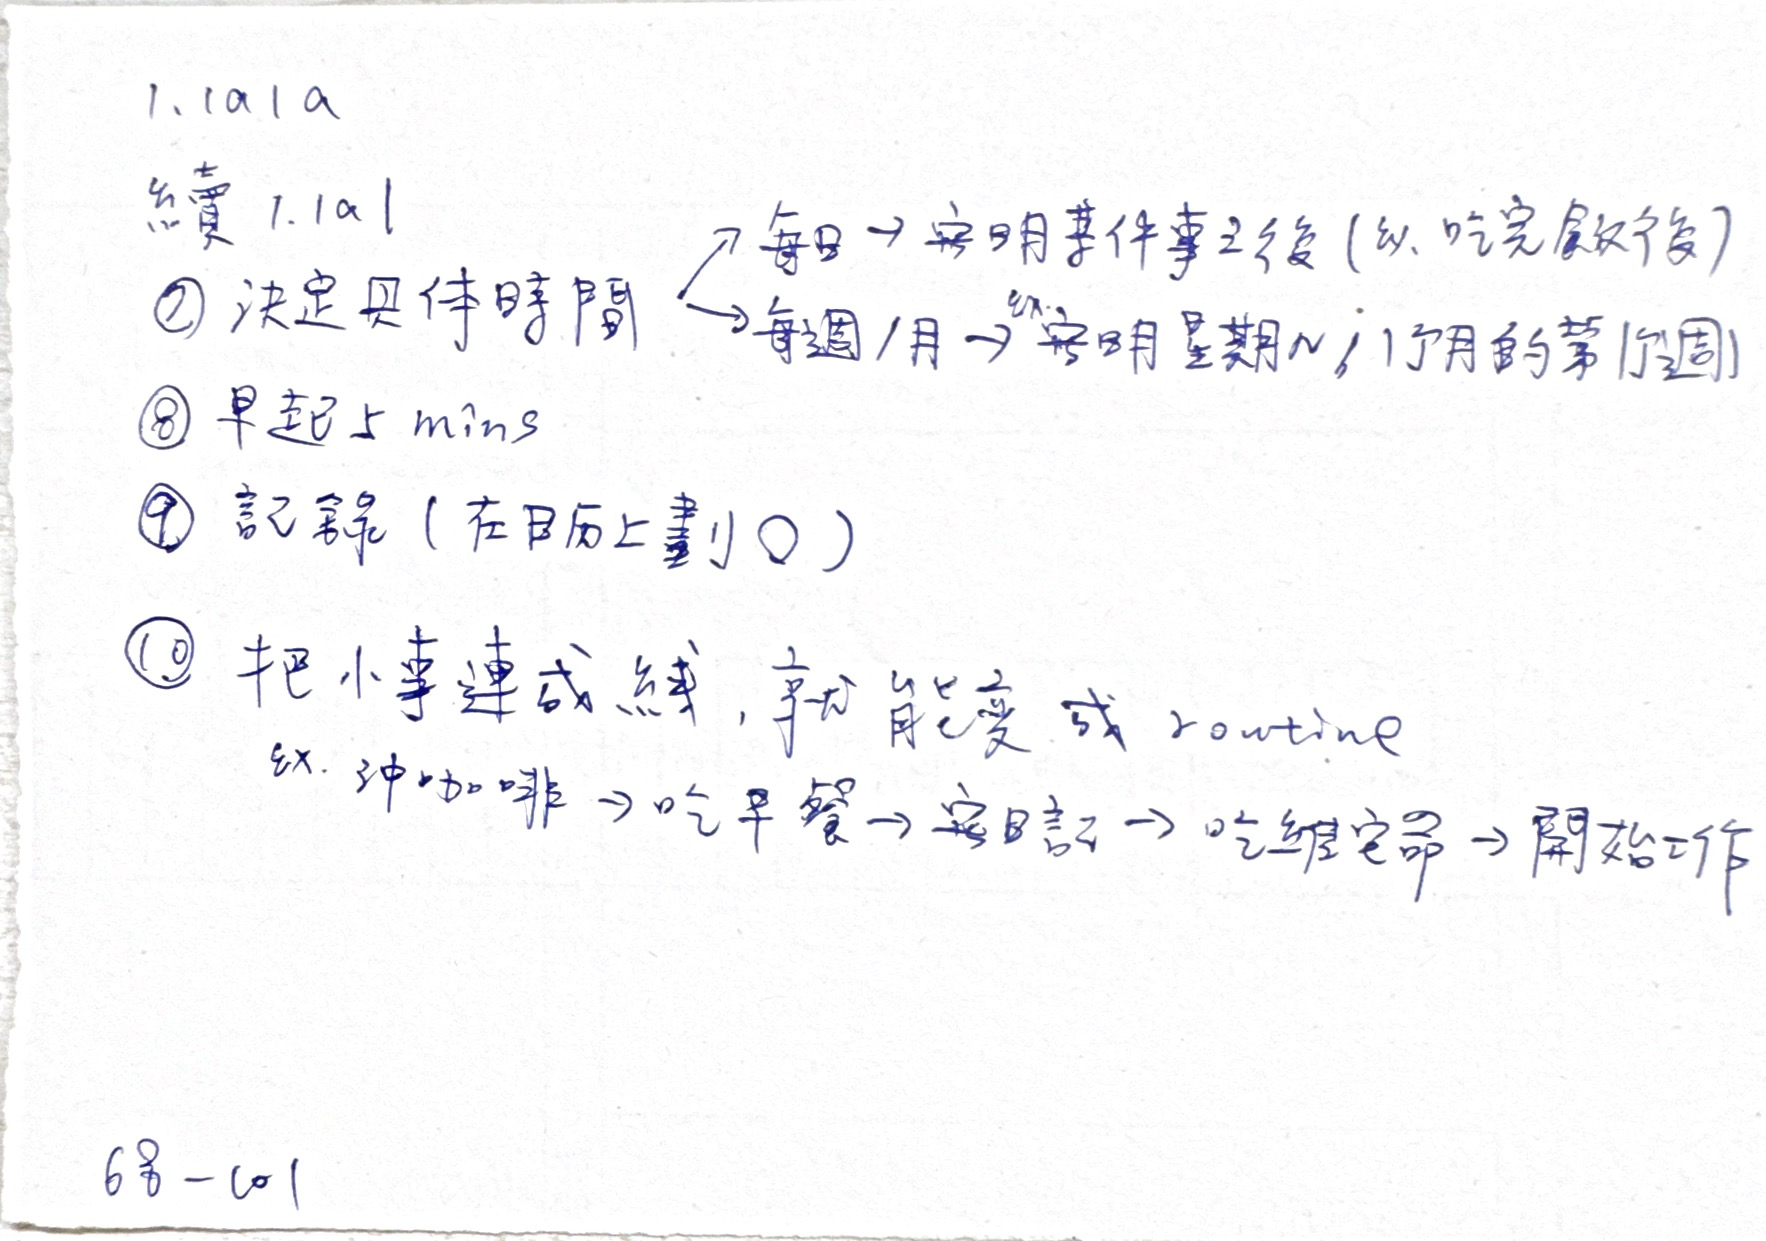 1.1a1a
續 1.1a1
⑦ 決定具体時間
↗ 每日 → 寫明某件事之後 (ex. 吃完飯後)
↘ 每週/月 → ex. 寫明星期N, 1个月的第1个週
⑧ 早起 5 mins
⑨ 記錄 (在日历上劃〇)
⑩ 把小事連成線, 就能變成 routine
ex. 沖咖啡 → 吃早餐 → 寫日記 → 吃維它命 → 開始工作
68-101